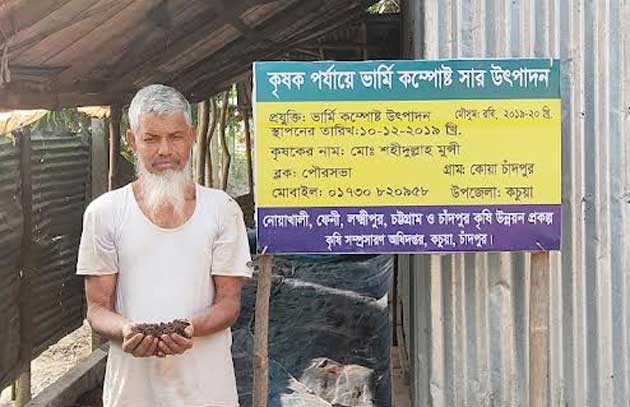 কৃষক পর্যায়ে ভার্মি কম্পোষ্ট সার উৎপাদন
প্রযুক্তি: ভার্মি কম্পোষ্ট উৎপাদন মৌসুম: রবি, ২০১৯-২০ খ্রি.
স্থাপনের তারিখ:১০-১২-২০১৯ খ্রি.
কৃষকের নাম: মোঃ শহীদুল্লাহ মুন্সী
ব্লক: পৌরসভা গ্রাম: কোয়া চাঁদপুর
মোবাইল: ০১৭৩০ ৮২০৯৫৮ উপজেলা: কচুয়া
নোয়াখালী, ফেনী, লক্ষ্মীপুর, চট্টগ্রাম ও চাঁদপুর কৃষি উন্নয়ন প্রকল্প
কৃষি সম্প্রসারণ অধিদপ্তর, কচুয়া, চাঁদপুর।